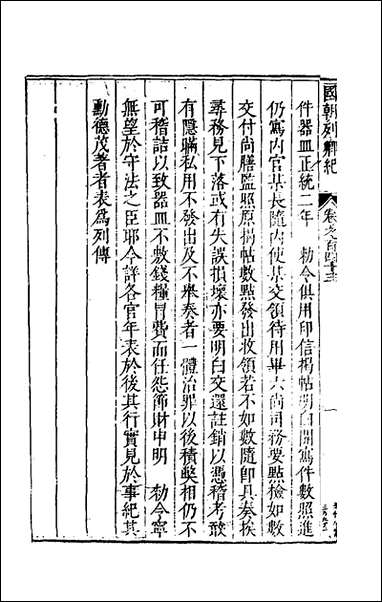 國朝列卿紀 卷之百四十三
件器皿正統二年 勑令俱用印信揭帖明白開寫件數照進
仍寫內官某長隨內使某交領待用畢六尚司務要點檢如數
交付尚膳監照原揭帖數點發出收領若不如數隨即具奏挨
尋務見下落或有失誤損壞亦要明白交還註銷以憑稽考敢
有隱瞞私用不發出及不舉奏者一體治罪以後積獘相仍不
可稽詰以致器皿不敷錢糧冒費而任怨節財申明 勑令寧
無望於守法之臣耶今詳各官年表於後其行實見於事紀其
勳德茂著者表為列傳